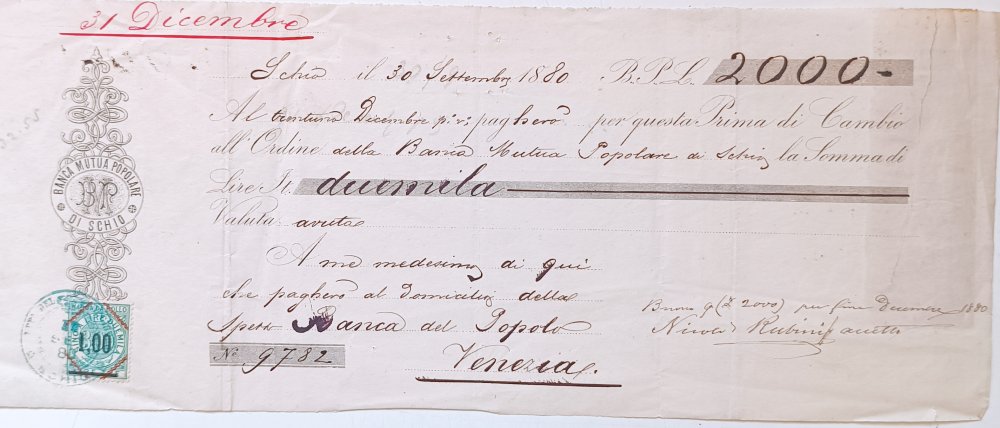 31 Dicembre
Schio il 30 Settembre 1880 B.P.L. 2000-
Al trentuno Dicembre p. v. pagherò per questa Prima di Cambio
all'Ordine della Banca Mutua Popolare di Schio la Somma di
Lire It. duemila
Valuta avuta
A me medesimo di qui
che pagherò al domicilio della
Banca del Popolo
No. 9782 Venezia.
BANCA MUTUA POPOLARE
DI SCHIO
BMP
1,00
Buono p (£ 2000) per fine Decembre 1880
Nicolò Rubini accetto